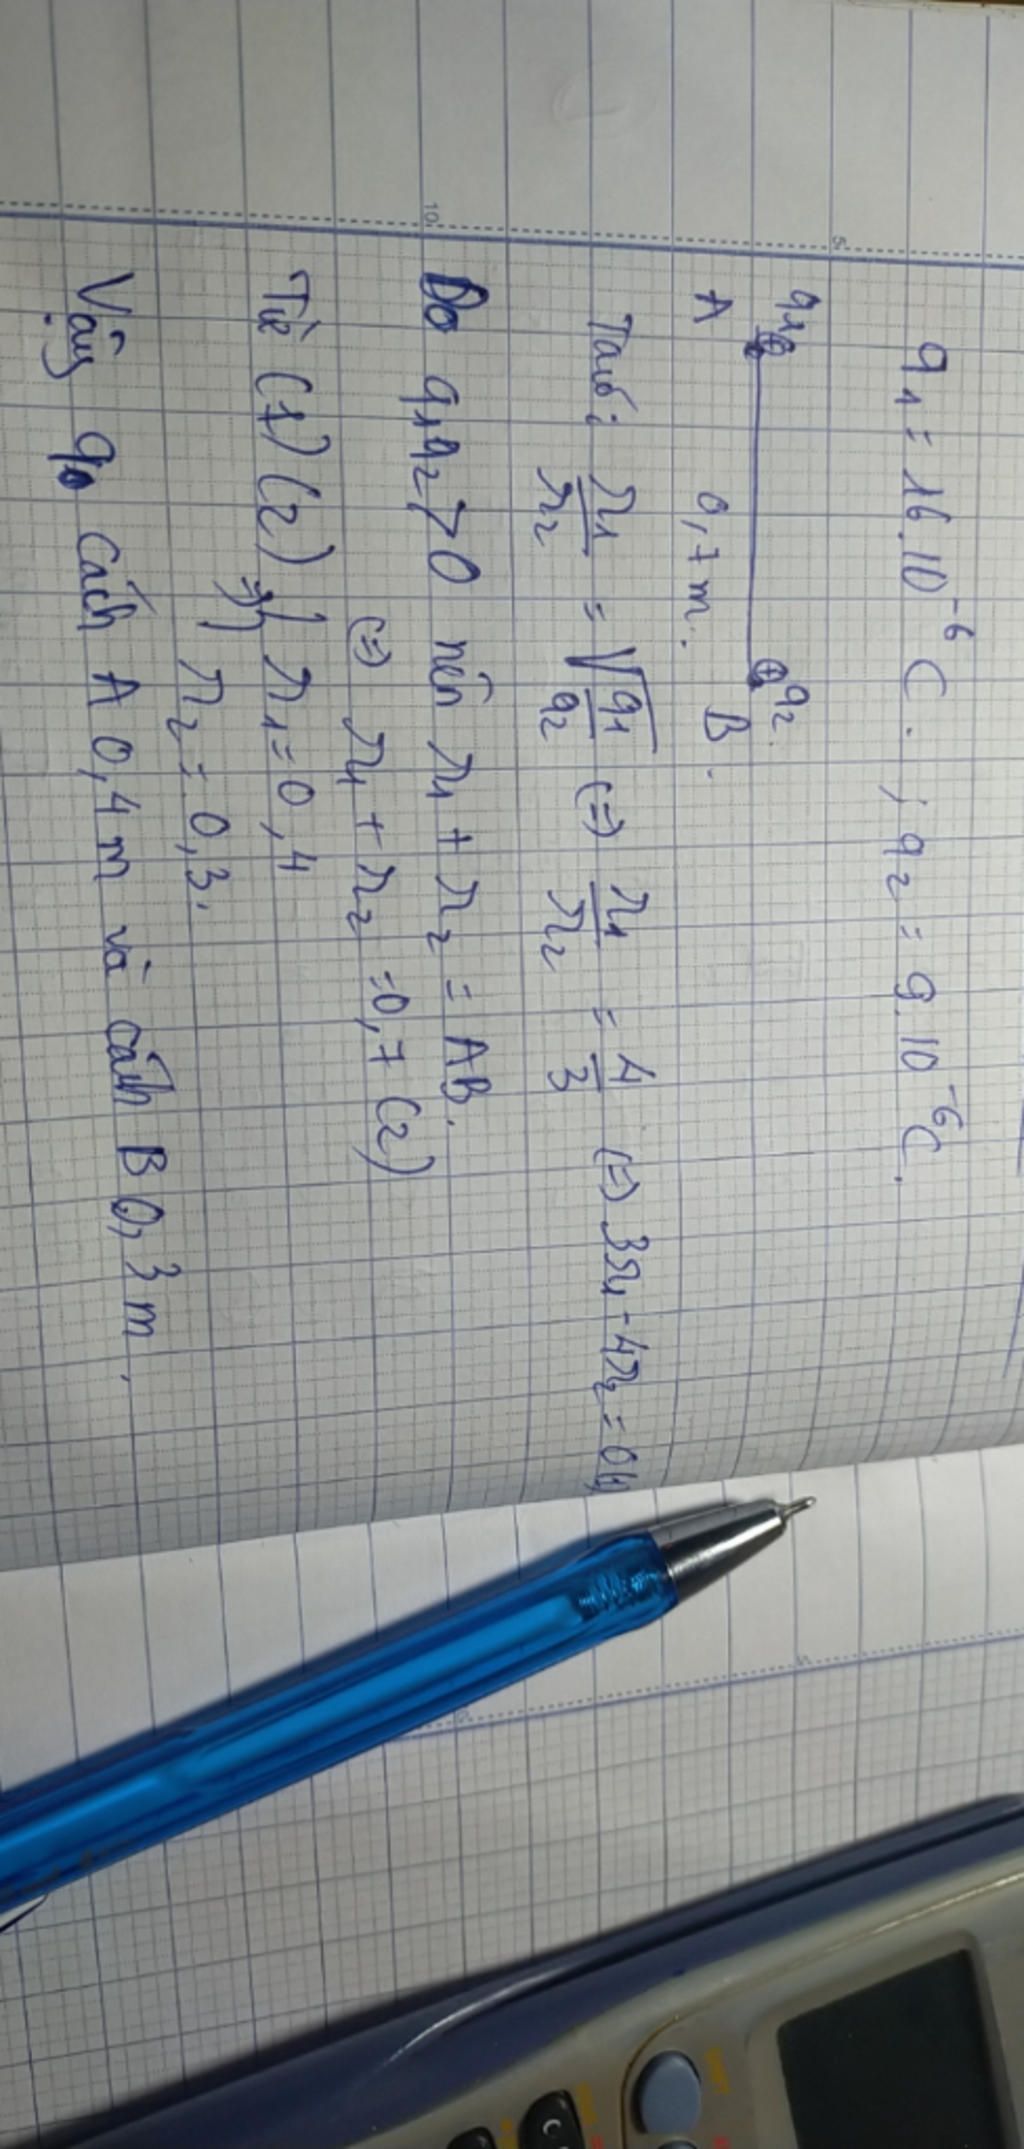 q₁ = 16.10⁻⁶ C. ; q₂ = 9.10⁻⁶ C.
q₁ ⊕ ⊕ q₂.
A 0,7 m. B.
Ta có: r₁/r₂ = √(q₁/q₂) (=) r₁/r₂ = 4/3 (=) 3r₁ - 4r₂ = 0 (1)
Do q₁q₂ > 0 nên r₁ + r₂ = AB.
(=) r₁ + r₂ = 0,7 (2)
Từ (1) (2) => { r₁ = 0,4
r₂ = 0,3.
Vậy q₀ cách A 0,4 m và cách B 0,3 m.
5
10
SHIFT